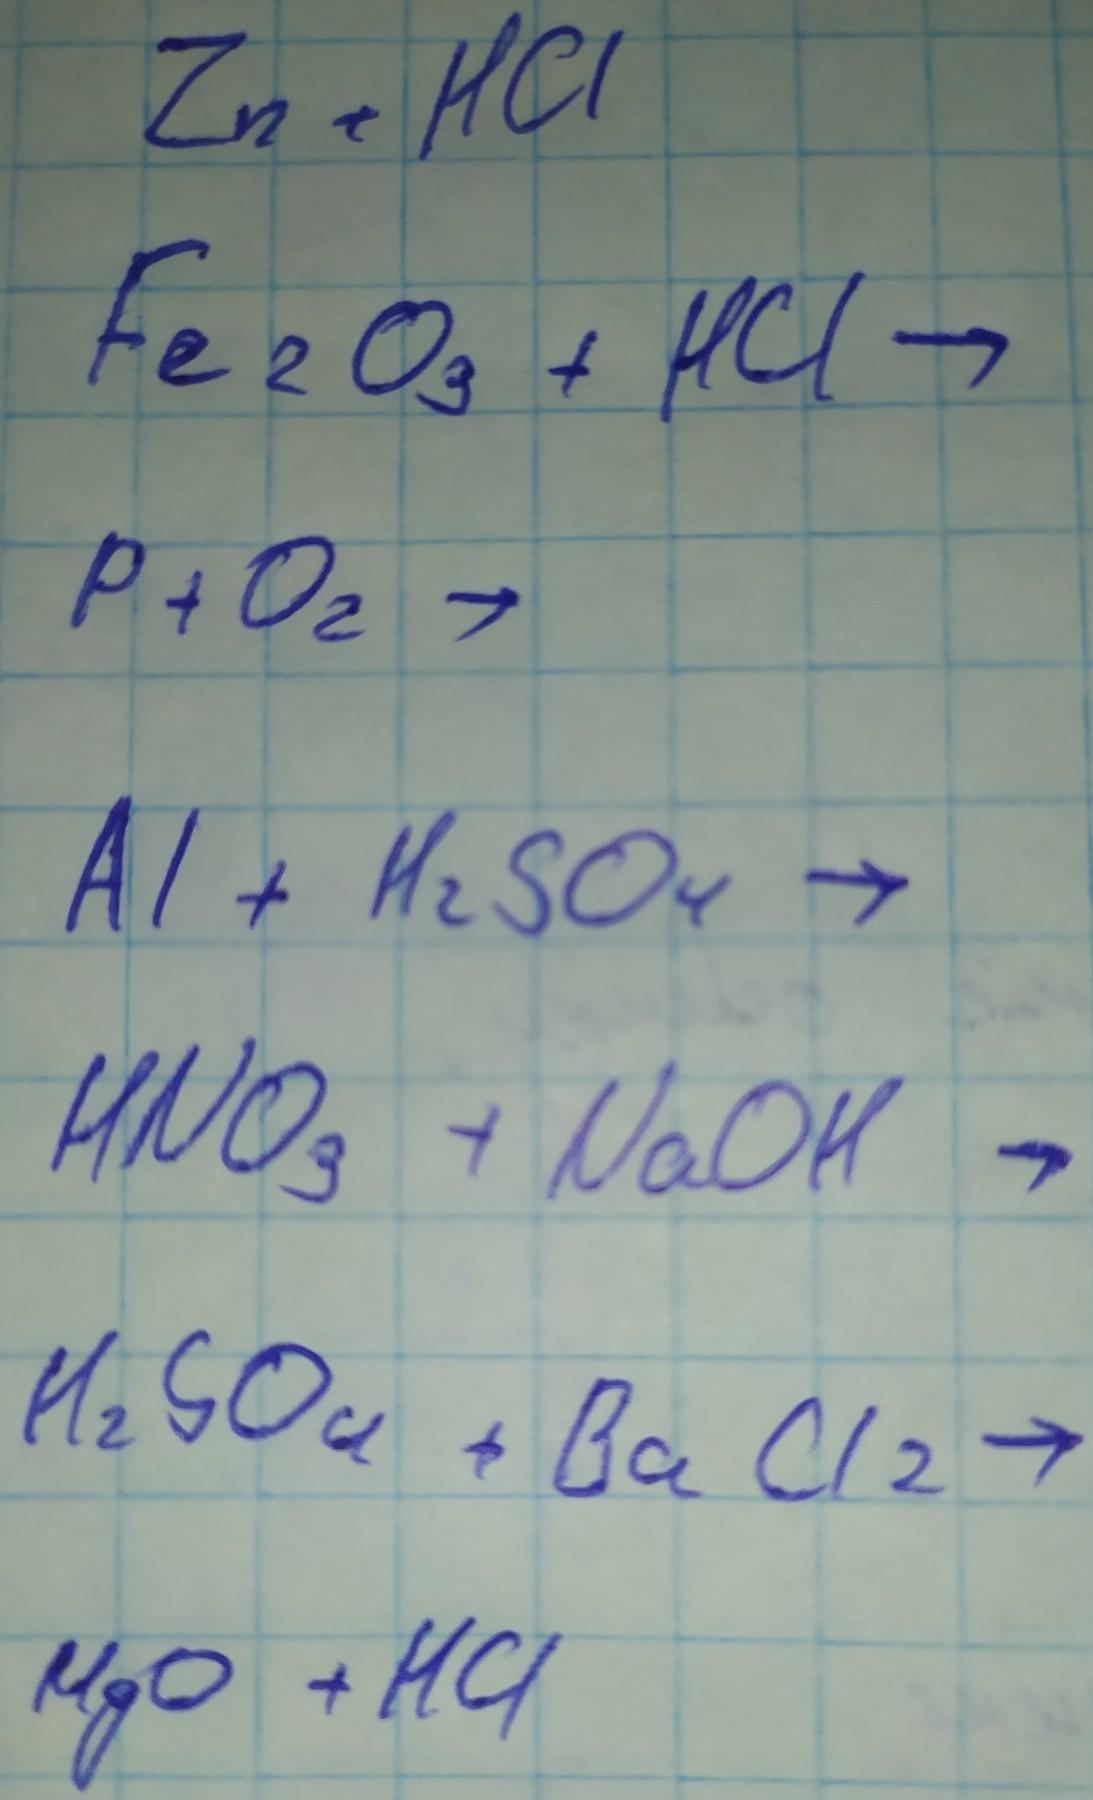 Zn + HCl
Fe₂O₃ + HCl →
P + O₂ →
Al + H₂SO₄ →
HNO₃ + NaOH →
H₂SO₄ + BaCl₂ →
MgO + HCl